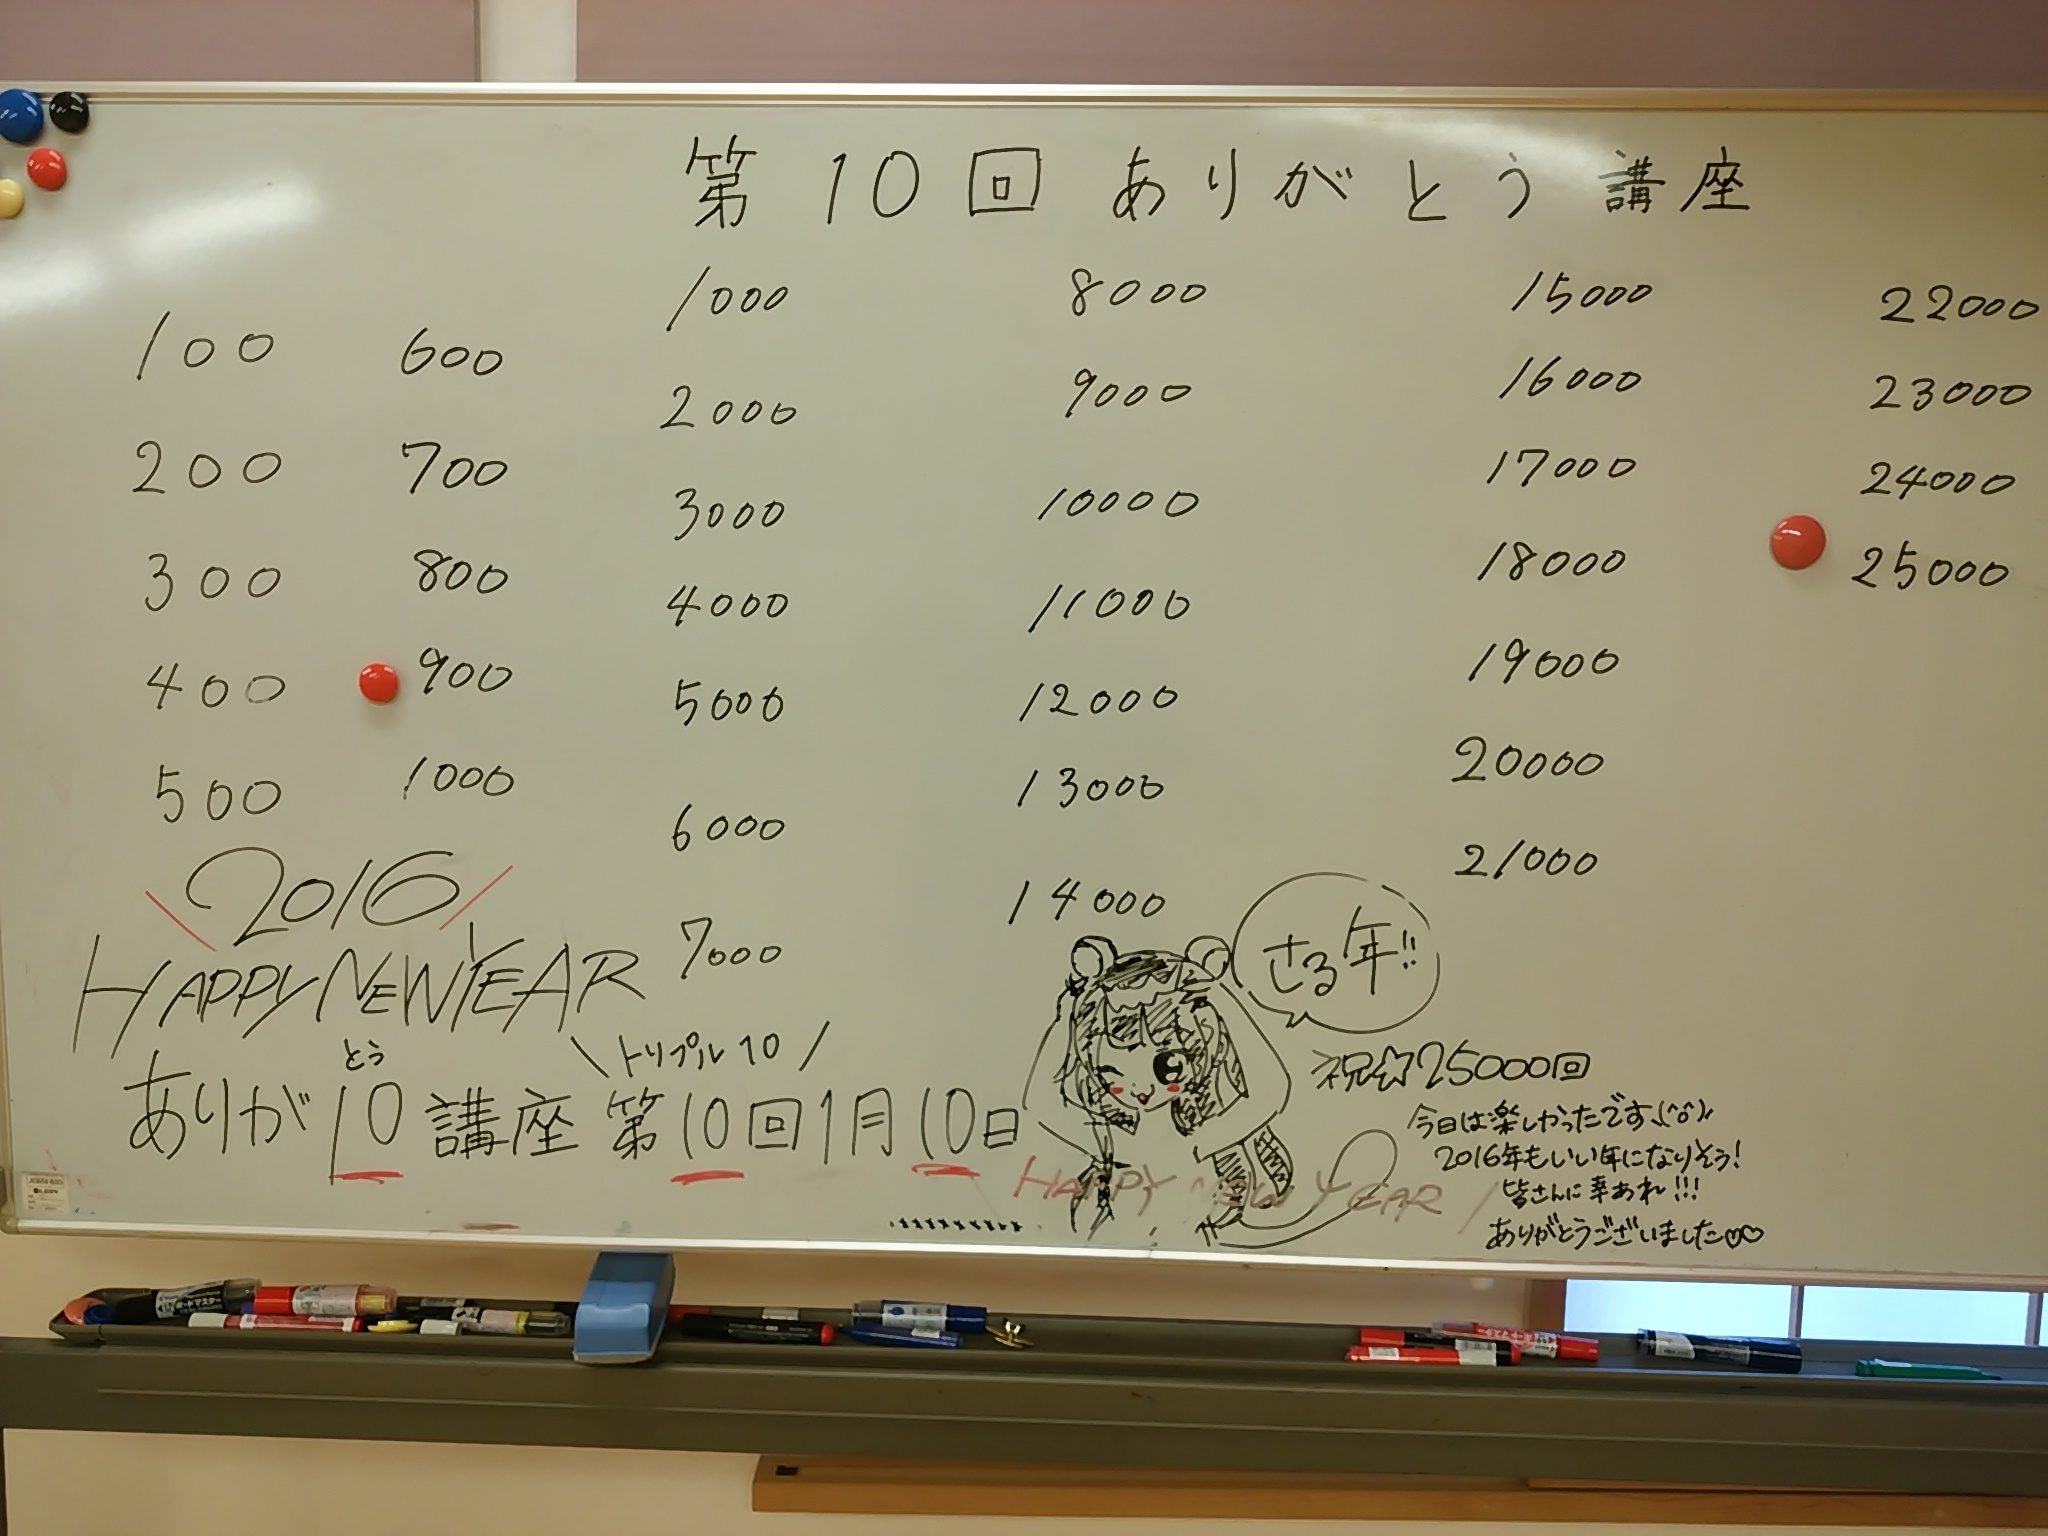 第10回ありがとう講座
100
200
300
400
500
600
700
800
900
1000
1000
2000
3000
4000
5000
6000
7000
8000
9000
10000
11000
12000
13000
14000
15000
16000
17000
18000
19000
20000
21000
22000
23000
24000
25000
\2016/
HAPPY NEW YEAR
とう \トリプル10/
ありが10講座 第10回1月10日
さる年!!
祝☆25000回
今日は楽しかったです、(^o^)ノ
2016年もいい年になりそう!
皆さんに幸あれ!!!
ありがとうございました♡♡
HAPPY NEW YEAR /